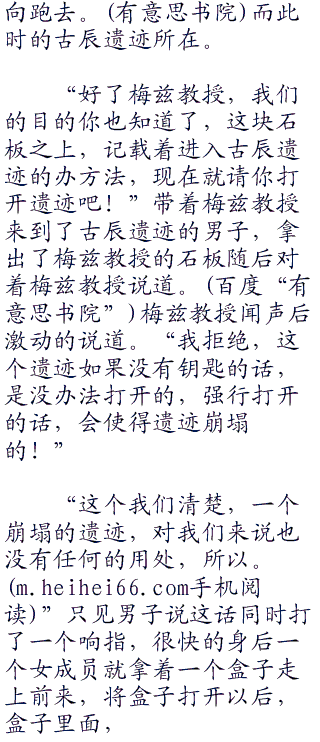 向跑去。(有意思书院)而此
时的古辰遗迹所在。
“好了梅兹教授，我们
的目的你也知道了，这块石
板之上，记载着进入古辰遗
迹的办方法，现在就请你打
开遗迹吧！”带着梅兹教授
来到了古辰遗迹的男子，拿
出了梅兹教授的石板随后对
着梅兹教授说道。(百度“有
意思书院”)梅兹教授闻声后
激动的说道。“我拒绝，这
个遗迹如果没有钥匙的话，
是没办法打开的，强行打开
的话，会使得遗迹崩塌
的！”
“这个我们清楚，一个
崩塌的遗迹，对我们来说也
没有任何的用处，所以。
(m.heihei66.com手机阅
读)”只见男子说这话同时打
了一个响指，很快的身后一
个女成员就拿着一个盒子走
上前来，将盒子打开以后，
盒子里面，